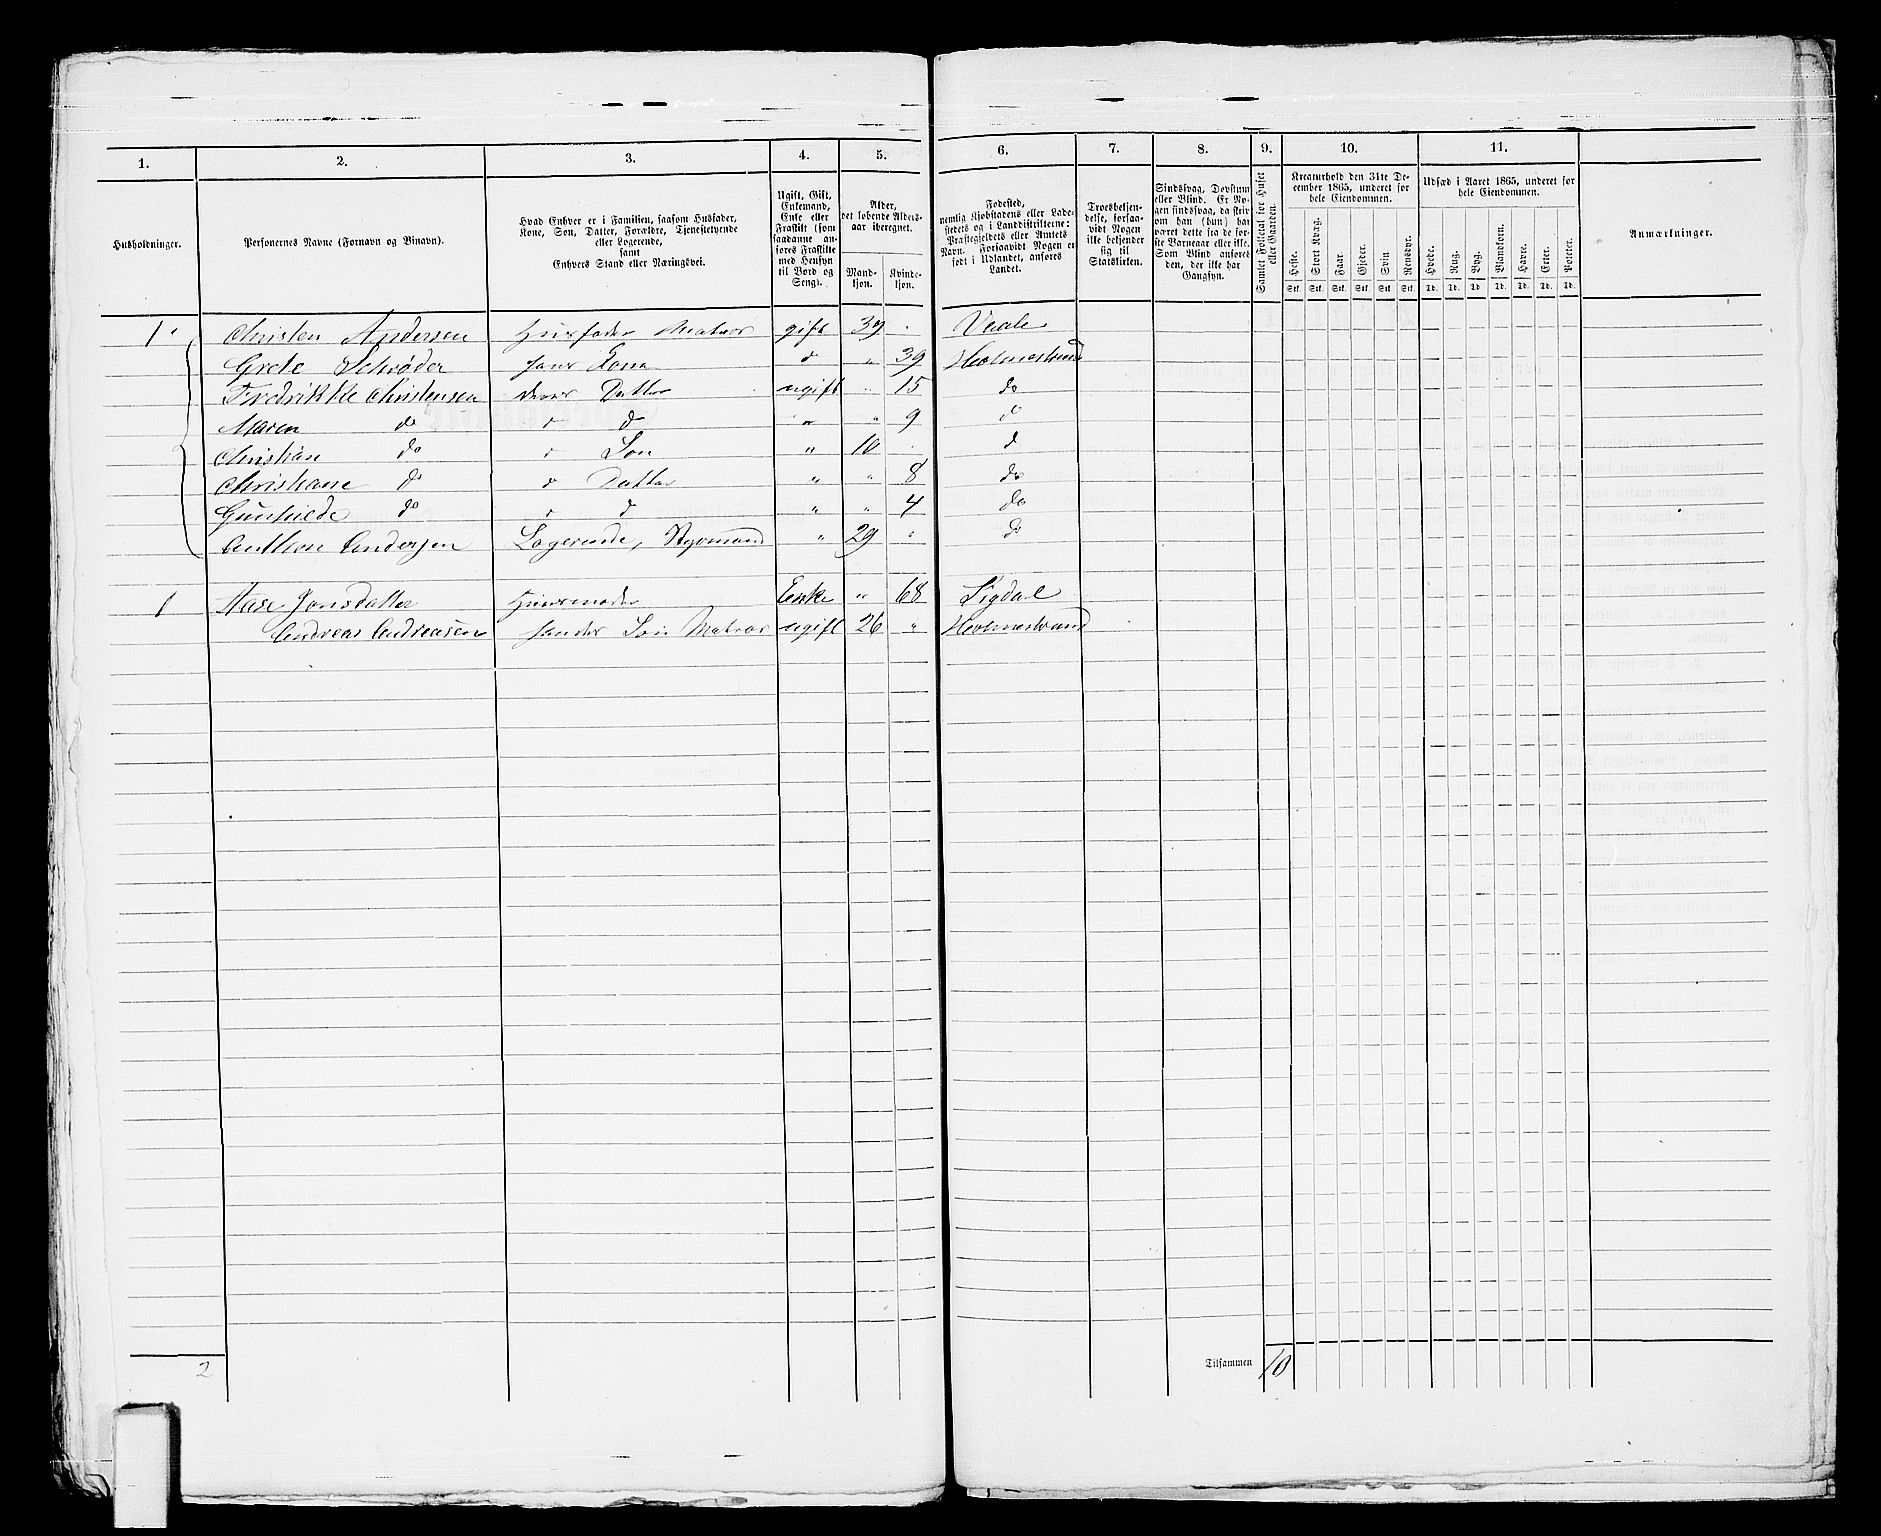 1. 2. 3. 4. 5. 6. 7. 8. 9. 10. 11.
Husholdninger.
Personernes Navne (Fornavn og Binavn).
Hvad Enhver er i Familien, saasom Husfader,
Kone, Søn, Datter, Forældre, Tjenestetyende
eller Logerende,
samt
Enhvers Stand eller Næringsvei.
Ugift, Gift,
Enkemand,
Enke eller
Fraskilt (som
saadanne an-
føres Fraskilte
med Hensyn
til Bord og
Seng).
Alder,
det løbende Alders-
aar iberegnet.
Mand-
kjøn.
Kvinde-
kjøn.
Fødested,
nemlig Kjøbstadens eller Lade-
stedets og i Landdistrikterne:
Præstegjeldets eller Amtets
Navn. Forsaavidt Nogen er
født i Udlandet, anføres
Landet.
Troesbekjen-
delse, forsaa-
vidt Nogen
ikke bekjender
sig til
Statskirken.
Sindssvag, Døvstum
eller Blind. Er No-
gen sindssvag, da skriv
om han (hun) har
været dette fra de før-
ste Barneaar eller ikke.
Som Blind anføres
den, der ikke har
Gangsyn.
Samlet Folketal for Huset
eller Gaarden.
Kreaturhold den 31te De-
cember 1865, underet for
hele Eiendommen.
Heste. Stort Kvæg. Faar. Gjeder. Svin. Rensdyr.
Stk. Stk. Stk. Stk. Stk. Stk.
Udsæd i Aaret 1865, underet for
hele Eiendommen.
Hvede. Rug. Byg. Blandkorn. Havre. Erter. Poteter.
Td. Td. Td. Td. Td. Td. Td.
Anmærkninger.
1 Christen Andersen Huusfader Matros gift 39 Veale
Grete Schrøder hans Kone do " 39 Holmestrand
Fredrikke Christensen deres Datter ugift " 15 do
Maren do " d " " 9 do
Christian do " Søn " 10 d
Christiane do " Datter " " 8 do
Gunhilde do " d " " 4 do
Anthon Andersen Logerende, Styrmand " 29 " do
1 Aase Jonsdatter Huusmoder Enke " 68 Sigdal
Andreas Andreasen hendes Søn Matros ugift 26 " Holmestrand
2
Tilsammen 10